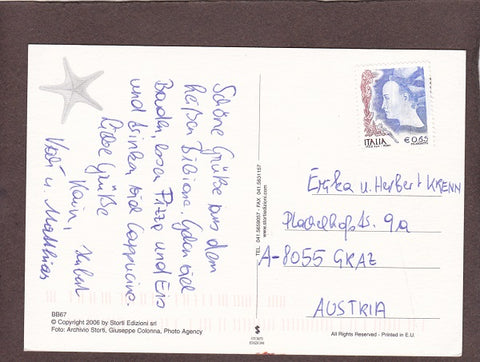 Schöne Grüße aus dem
heißen Bibione. Gehen viel
Baden, essen Pizza und Eis
und trinken viel Cappuccino.
Liebe Grüße
Karin, Hubert
u. Matthias
ITALIA
€0,65
Erika u. Herbert KRENN
9a
A-8055 GRAZ
AUSTRIA
TEL. 041.5659057 - FAX 041.5631157
www.storiedizioni.com
BB67
© Copyright 2006 by Storti Edizioni srl
Foto: Archivio Storti, Giuseppe Colonna, Photo Agency
S
STORTI
EDIZIONI
All Rights Reserved - Printed in E.U.